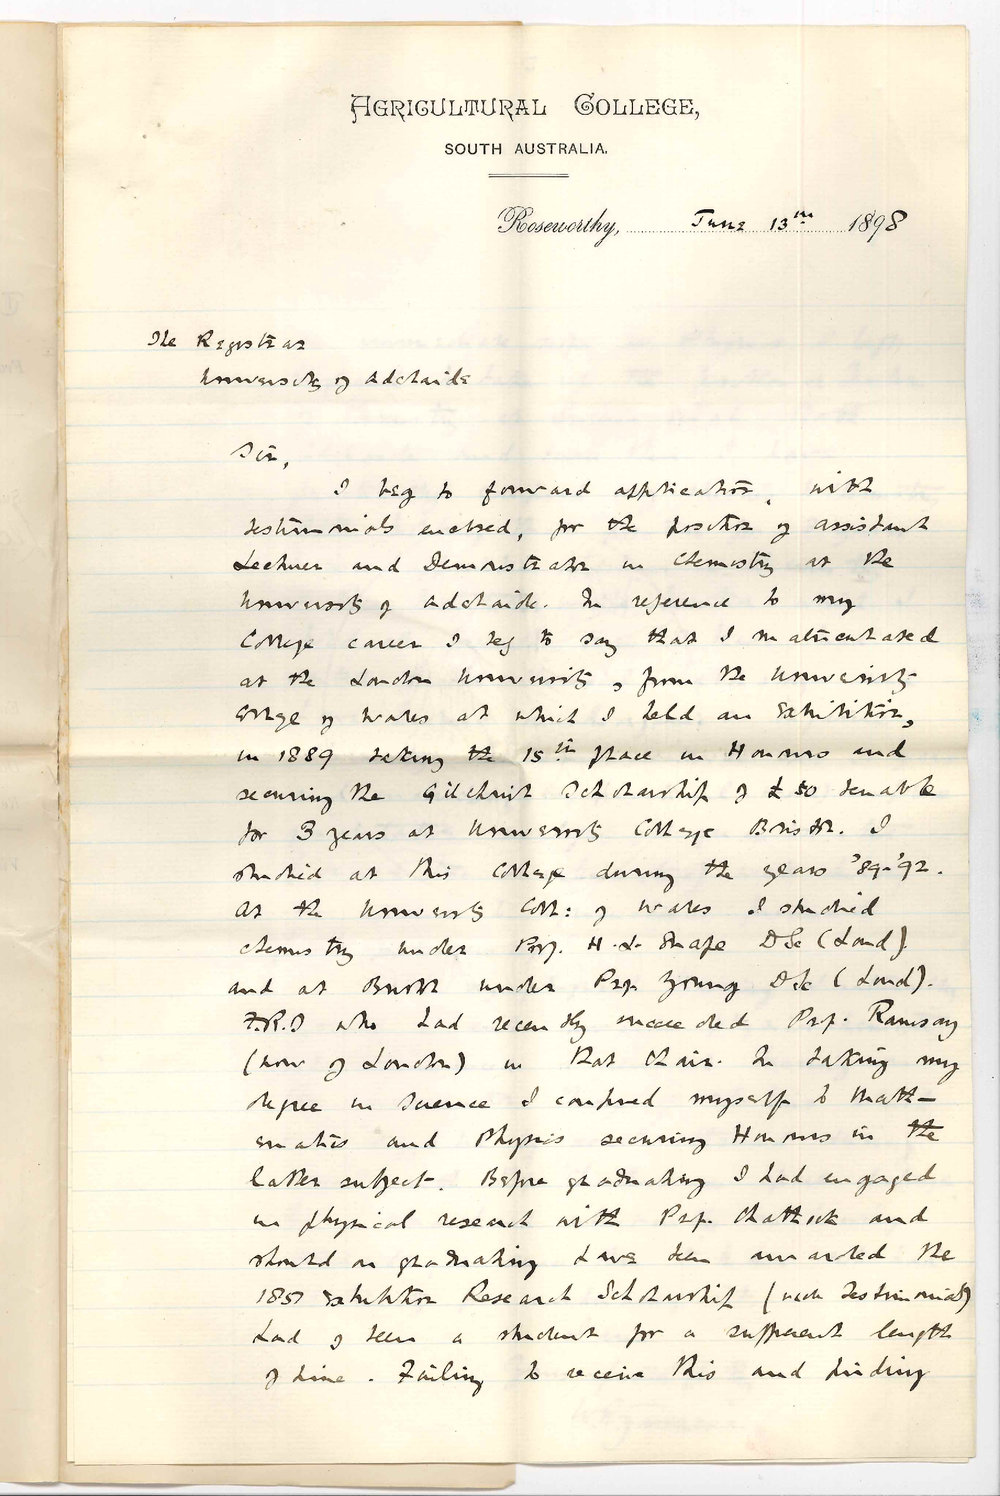 AGRICULTURAL COLLEGE,
SOUTH AUSTRALIA.
Roseworthy, June 13th 1898
The Registrar
University of Adelaide
Sir,
I beg to forward application, with
testimonials enclosed, for the position of assistant
Lecturer and Demonstrator in Chemistry at the
University of Adelaide. In reference to my
College career I beg to say that I matriculated
at the London University, from the University
College of Wales at which I held an Exhibition,
in 1889 taking the 15th place in Honours and
securing the Gilchrist Scholarship of £50 tenable
for 3 years at University College Bristol. I
studied at this College during the years '89-'92.
At the University Coll: of Wales I studied
chemistry under Prof. H. L. Snape DSc (Lond).
and at Bristol under Prof. Young DSc (Lond).
F.R.S who had recently succeeded Prof. Ramsay
(now of London) in that Chair. In taking my
degree in Science I confined myself to Math-
ematics and Physics securing Honours in the
latter subject. Before graduating I had engaged
in physical research with Prof. Chattock and
should on graduating have been awarded the
1851 Exhibition Research Scholarship (vide testimonial)
had I been a student for a sufficient length
of time. Failing to receive this and finding